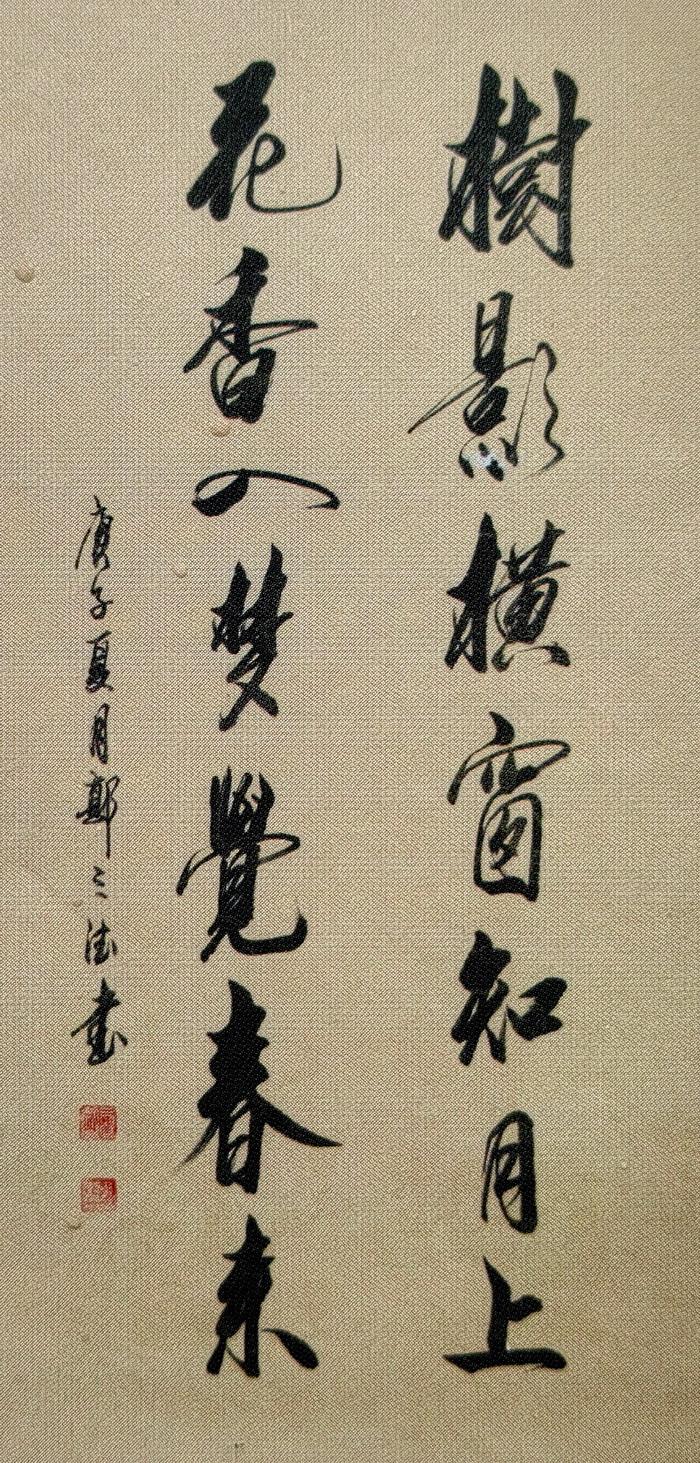 樹影橫窗知月上
花香入梦覺春来
庚子夏月鄭三法书